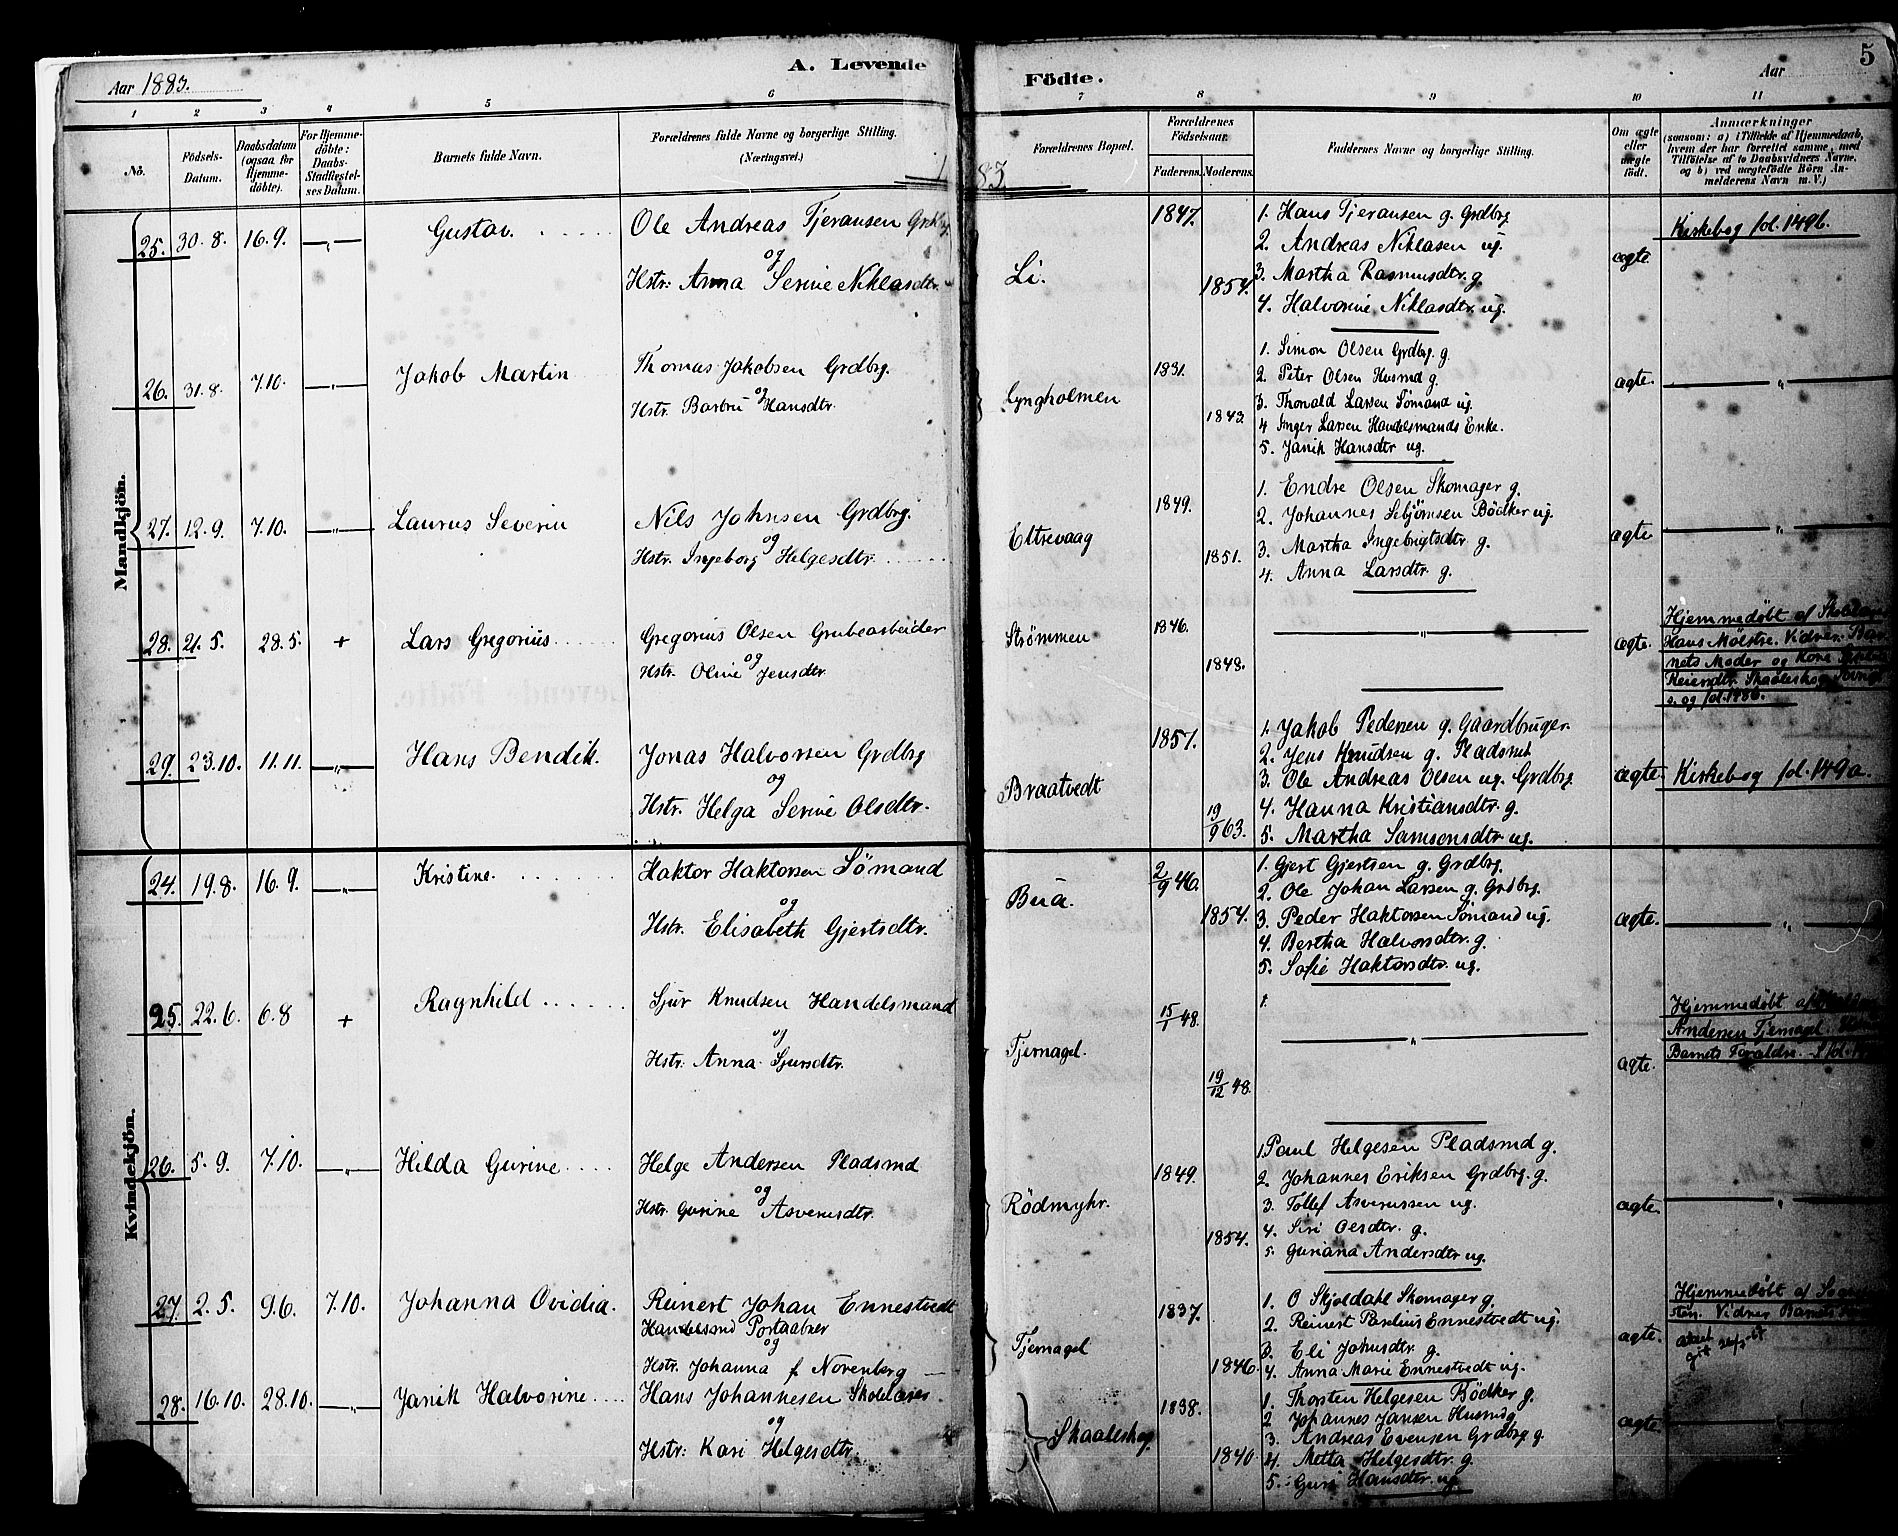 5
Aar 1883.
A. Levende Födte.
Aar
1 2 3 4 5 6 7 8 9 10 11
No.
Födsels-Datum.
Daabsdatum (ogsaa for Hjemmedöbte).
For Hjemmedöbte: Daabs-Stadfestelses Datum.
Barnets fulde Navn.
Forældrenes fulde Navne og borgerlige Stilling. (Næringsvei.)
Forældrenes Bopæl.
Forældrenes Födselsaar.
Faderens. Moderens.
Faddernes Navne og borgerlige Stilling.
Om ægte eller uægte födt.
Anmærkninger
(saasom: a) i Tilfælde af Hjemmedaab,
hvem der har forrettet samme, med
Tilföielse af to Daabsvidners Navne,
og b) ved uægtefödte Börn An-
melderens Navn m. V.)
Mandkjön.
25. 30.8. 16.9. —„— Gustav. Ole Andreas Tjeransen Grdbrg.
og
Hstr: Anna Serine Niklasdtr.
Li.
1847.
1854.
1. Hans Tjeransen g. Grdbrg
2. Andreas Niklasen ug.
3. Martha Rasmusdtr. g.
4. Halvorine Niklasdtr. ug.
ægte.
Kirkebog fol. 149b.
26. 31.8. 7.10. —„— Jakob Martin Thomas Jakobsen Grdbrg.
og
Hstr. Barbru Hansdtr.
Lyngholmen
1831.
1843.
1. Simon Olsen Grdbrg. g.
2. Peter Olsen Husmd g.
3. Thorvald Larsen Sömand ug.
4 Inger Larsen Handelsmands Enke.
5. Janik Hansdtr ug.
ægte. —„—
27. 12.9. 7.10. —„— Laurus Severin Nils Johnsen Grdbrg.
og
Hstr. Ingeborg Helgesdtr.
Eltrevaag
1849.
1851.
1. Endre Olsen Skomager g.
2. Johannes Sebjörnsen Bödker ug.
3. Martha Ingebrigtsdtr. g.
4. Anna Larsdtr. g.
ægte. —„—
28. 21.5. 28.5. + Lars Gregorius Gregorius Olsen Grubearbeider
og
Hstr. Oline Jensdtr.
Strömmen
1846.
1848.
—„—
ægte.
Hjemmedöbt af
Hans Molstre. Vidner: Bar-
nets Moder og Kone
Reiersdtr. Skaaleskog
fol. 148b.
29. 23.10. 11.11. —„— Hans Bendik. Jonas Halvorsen Grdbrg
og
Hstr. Helga Serine Olsdtr.
Braatvedt
1857.
19/9 63.
1. Jakob Pedersen g. Gaardbruger.
2. Jens Knudsen g. Pladsmd.
3. Ole Andreas Olsen ug. Grdbrg.
4. Hanna Kristiansdtr. g.
5. Martha Samsonsdtr. ug.
ægte. Kirkebog fol. 149a.
Kvindekjön.
24. 19.8. 16.9. —„— Kristine. Haktor Haktorsen Sömand
og
Hstr. Elisabeth Gjertsdtr.
Bua.
2/9 46.
1854.
1. Gjert Gjertsen g. Grdbrg.
2. Ole Johan Larsen g. Grdbrg.
3. Peder Haktorsen Sömand ug.
4. Bertha Halvorsdtr. g.
5. Sofie Haktorsdtr. ug.
ægte. —„—
25. 22.6. 6.8 + Ragnhild Sjur Knudsen Handelsmand
og
Hstr. Anna Sjursdtr.
Tjernagel.
15/1 48.
19/12 48.
1.
—„—
ægte.
Hjemmedöbt af
Andersen Tjernagel.
Barnets Forældre.
26. 5.9. 7.10. —„— Hilda Gurine Helge Andersen Pladsmd
og
Hstr. Gurine Asverusdtr.
Rödmyhr.
1849.
1854.
1. Paul Helgesen Pladsmd g.
2. Johannes Eriksen Grdbrg. g.
3. Tollef Asverussen ug.
4. Siri Olsdtr. g.
5. Guriana Andersdtr ug.
ægte. —„—
27. 2.5. 9.6. 7.10. Johanna Ovidia. Reinert Johan Ennestvedt
Handelsmd Postaabner
og
Hstr. Johanna f. Norenberg
Tjernagel
1837.
1846.
1. O Skjoldahl Skomager g.
2. Reinert Paulius Ennestvedt ug.
3. Eli Johnsdtr. g.
4. Anna Marie Ennestvedt ug.
ægte.
Hjemmedöbt af
Vidner Barnets
28. 16.10. 28.10. —„— Janik Halvorine Hans Johannesen Skolelærer
og
Hstr: Kari Helgesdtr.
Skaaleskog
1838.
1840
1. Thorsten Helgesen Bödker g.
2 Johannes Jansen Husmd g
3. Andreas Evensen Grdbrg g.
4. Metta Helgesdtr. g.
5. Guri Hansdtr. ug.
ægte. —„—